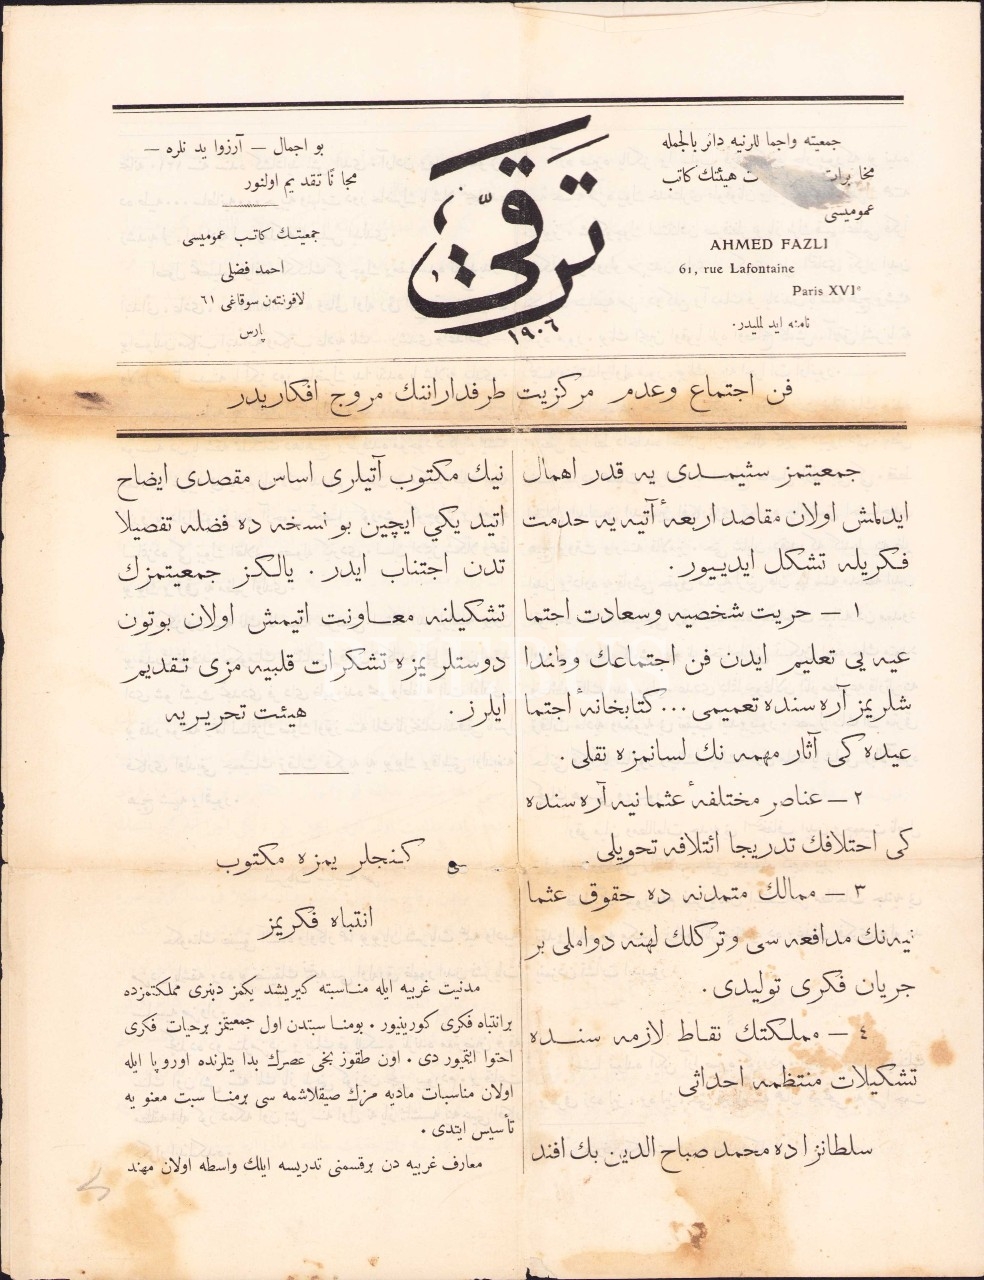 جمعيته واجما للرنيه دائر بالجمله
مخابرات ت هيئتك كاتب
عموميسى
AHMED FAZLI
61, rue Lafontaine
Paris XVIe
نامنه ايد لمليدر.
ترقى
١٩٠٦
بو اجمال — آرزوا يد نلره —
مجا نًا تقديم اولنور
جمعيتك كاتب عموميسى
احمد فضلى
لافونته‌ن سوقاغى ٦١
پارس
فن اجتماع وعدم مركزيت طرفداراننك مروج افكاريدر
جمعيتمز سثيمدى يه قدر اهمال
ايدلمش اولان مقاصد اربعهٔ آتيه يه خدمت
فكريله تشكل ايدييور.
١ — حريت شخصيه وسعادت اجتما
عيه يى تعليم ايدن فن اجتماعك وطندا
شلريمز آره سنده تعميمى... كتابخانهٔ اجتما
عيده كى آثار مهمه نك لسانمزه نقلى.
٢ — عناصر مختلفهٔ عثمانيه آره سنده
كى اختلافك تدريجا ائتلافه تحويلى
٣ — ممالك متمدنه ده حقوق عثما
نيه‌نك مدافعه سى وتركلك لهنه دواملى بر
جريان فكرى توليدى.
٤ — مملكتك نقاط لازمه سنده
تشكيلات منتظمه احداثى
سلطانزاده محمد صباح الدين بك افند
نيك مكتوب آتيلرى اساس مقصدى ايضاح
اتيد يكي ايچين بو نسخه ده فضله تفصيلا
تدن اجتناب ايدر. يالكز جمعيتمزك
تشكيلنه معاونت اتيمش اولان بوتون
دوستلريمزه تشكرات قلبيه مزى تقديم
ايلرز. هيئت تحريريه
كنجلر يمزه مكتوب
انتباه فكريمز
مدنيت غربيه ايله مناسبته كيريشد يكمز دنبرى مملكتمزده
برانتباه فكرى كورينيور. بومنا سبتدن اول جمعيتمز برحيات فكرى
احتوا ايتميور دى. اون طقوز نجى عصرك بدا يتلرنده اوروپا ايله
اولان مناسبات ماديه مزك صيقلاشمه سى برمناسبت معنويه
تأسيس ايتدى.
معارف غربيه دن برقسمنى تدريسه ايلك واسطه اولان مهند